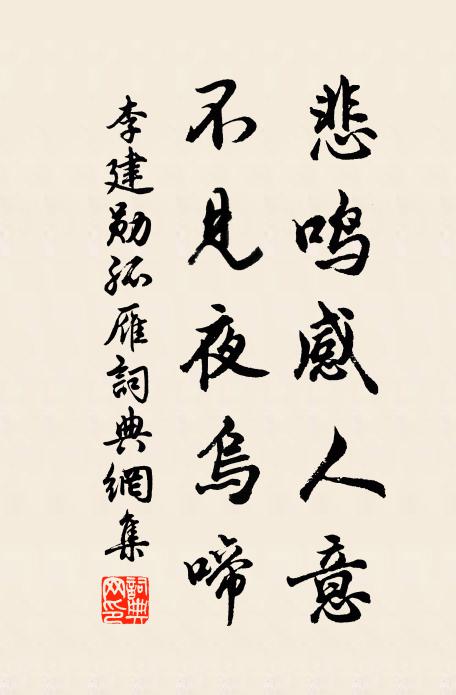 悲鸣感人意
不见夜乌啼
李建勋孤雁詞典網集
詞典网印